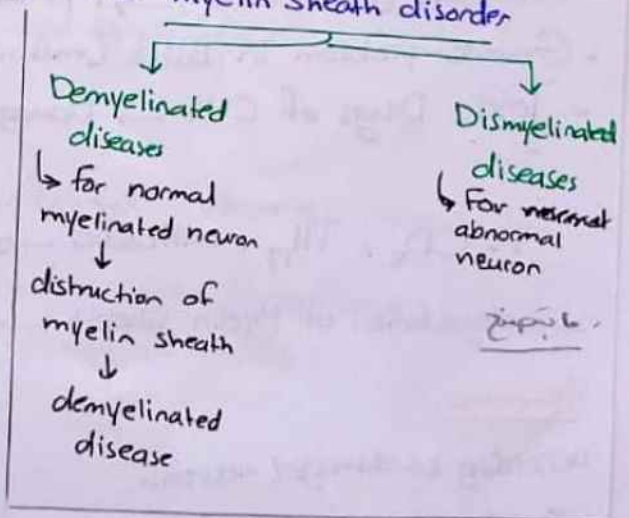 myelin sheath disorder
Demyelinated
diseases
↳ for normal
myelinated neuron
↓
distruction of
myelin sheath
↓
demyelinated
disease
Dismyelinated
diseases
↳ For
abnormal
neuron